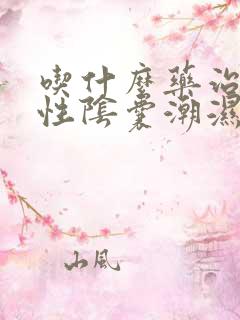 喫什麼藥治
性陰囊潮濕
山風